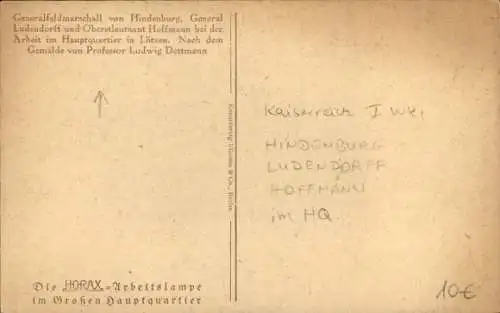 Generalfeldmarschall von Hindenburg, General
Ludendorff und Oberstleutnant Hoffmann bei der
Arbeit im Hauptquartier in Lötzen. Nach dem
Gemälde von Professor Ludwig Dettmann
Kaiserreich I WK,
HINDENBURG
LUDENDORFF
HOFFMANN
im HQ.
& Co., Berlin
Die HORAX-Arbeitslampe
im Großen Hauptquartier
10€